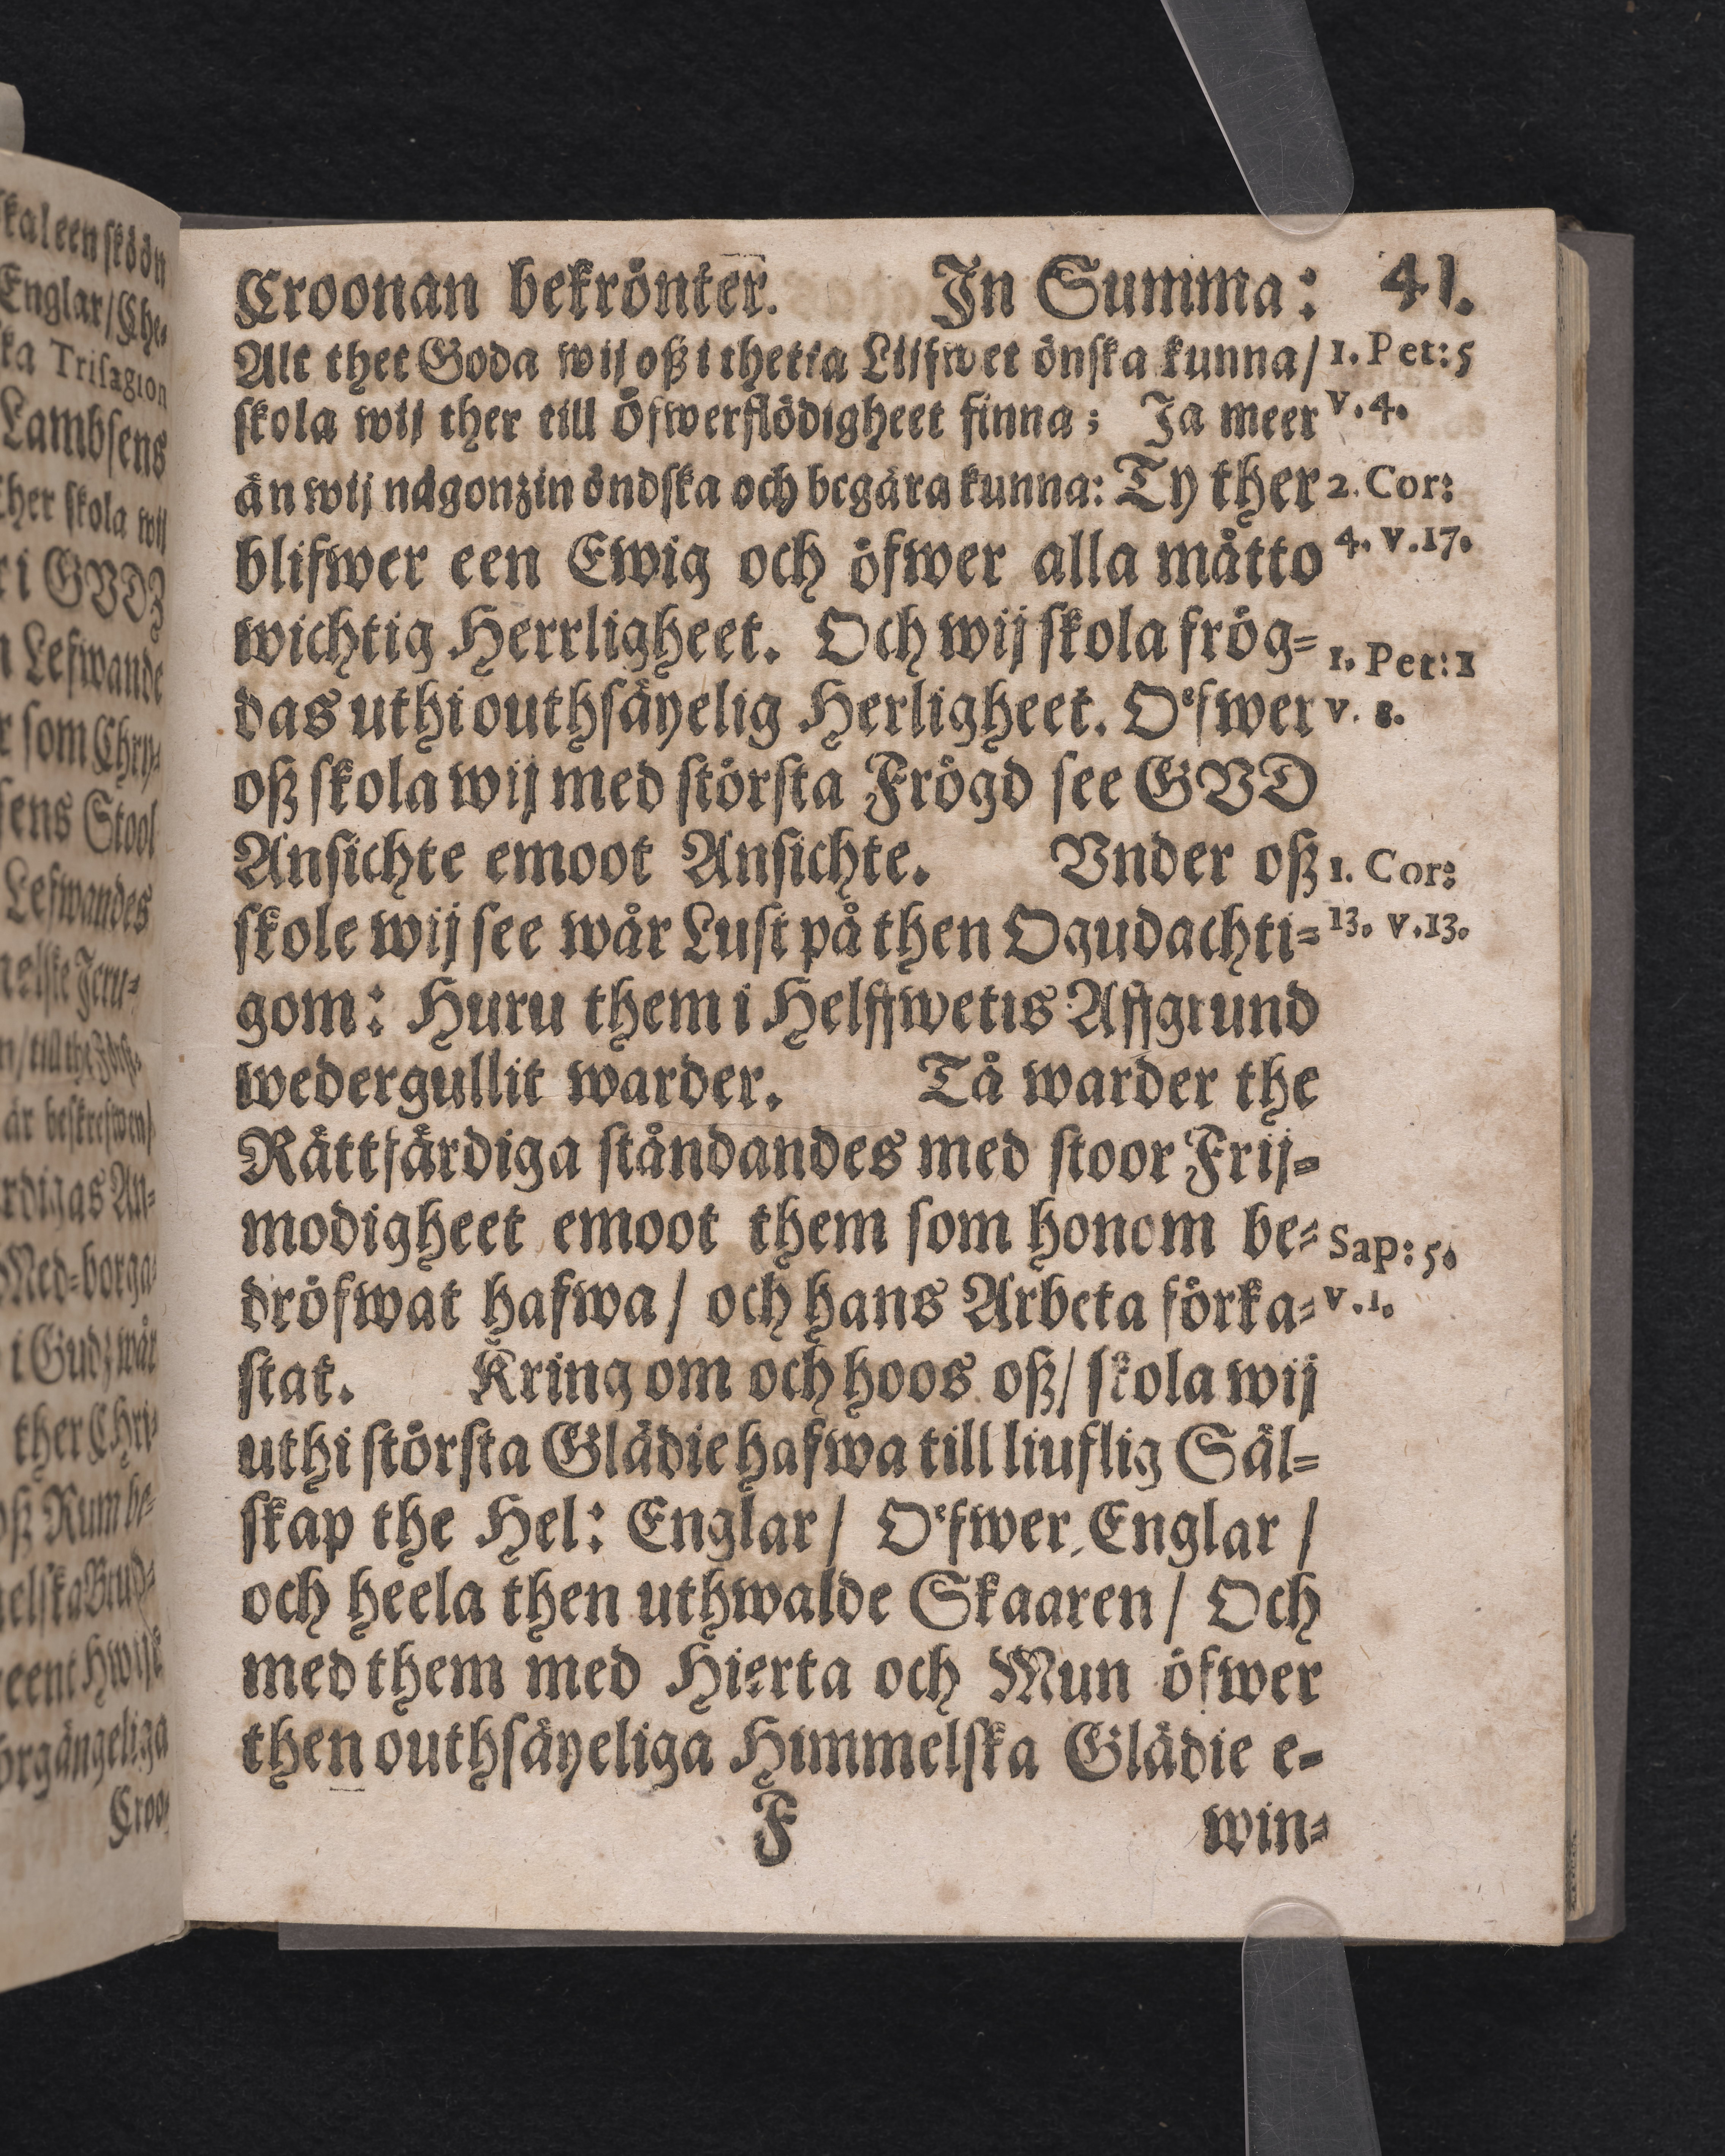 kaleen sköön
Englar/ Che-
ka Trisagion
Lambsens
ther skola wij
r i GVDZ
n Lefwande
r som Chry-
sens Stool
Lefwandes
melske Jeru-
är beskrefwen/
rdigas An-
Med-borga-
i Gudz wår
ther Chri-
oß Rum be-
melska Brud-
Croo-
Croonan bekrönter. In Summa: 41.
Alt thet Goda wij oß i thetta Liifwet önska kunna/ 1. Pet: 5
skola wij ther till Öfwerflödigheet finna; Ja meer v. 4.
än wij någonzin öndska och begära kunna: Ty ther 2. Cor:
blifwer een Ewig och öfwer alla måtto 4. v. 17.
wichtig Herrligheet. Och wij skola frög-
1. Pet: 1
das uthi outhsäyelig Herligheet. Oͤfwer v. 8.
oß skola wij med största Frögd see GVD
Ansichte emoot Ansichte. Vnder oß 1. Cor:
skole wij see wår Lust på then Ogudachti- 13. v. 13.
gom: Huru them i Helffwetis Affgrund
wedergullit warder. Tå warder the
Rättfärdiga ståndandes med stoor Frij-
modigheet emoot them som honom be- Sap: 5.
dröfwat hafwa/ och hans Arbeta förka- v. 1.
stat. Kring om och hoos oß/ skola wij
uthi största Glädie hafwa till liuflig Säl-
skap the Hel: Englar/ Oͤfwer Englar/
och heela then uthwalde Skaaren/ Och
med them med Hierta och Mun öfwer
then outhsäyeliga Himmelska Glädie e-
F win-